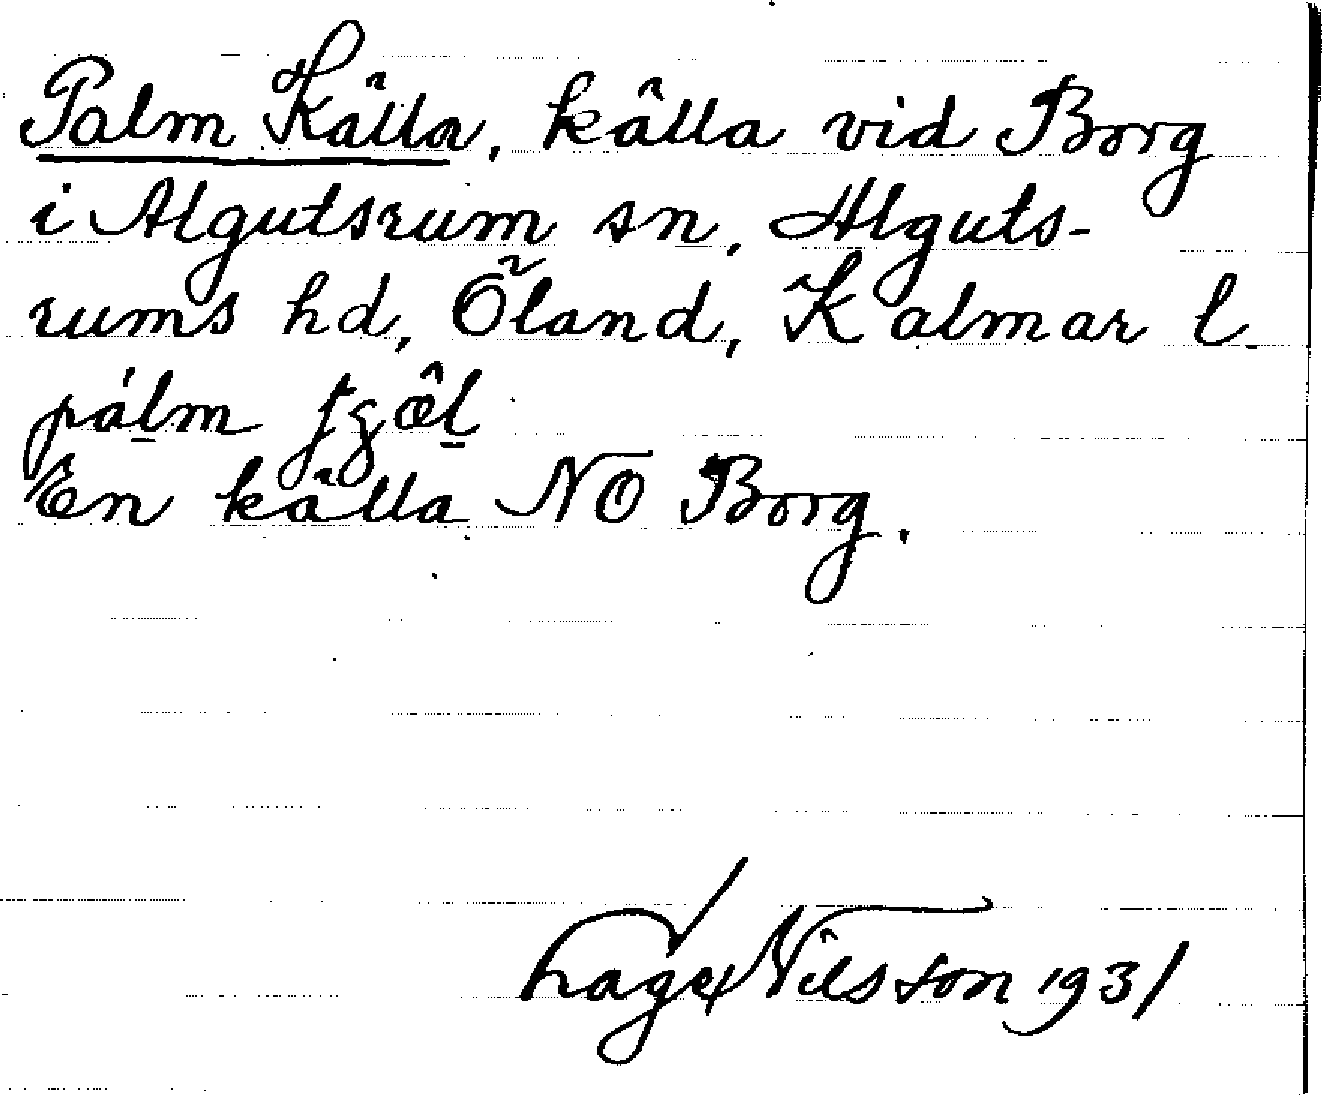 Palm Källa, källa vid Borg
i Algutsrum sn, Alguts-
rums hd, Öland, Kalmar l.
En källa NO Borg.
Nilsson 1931